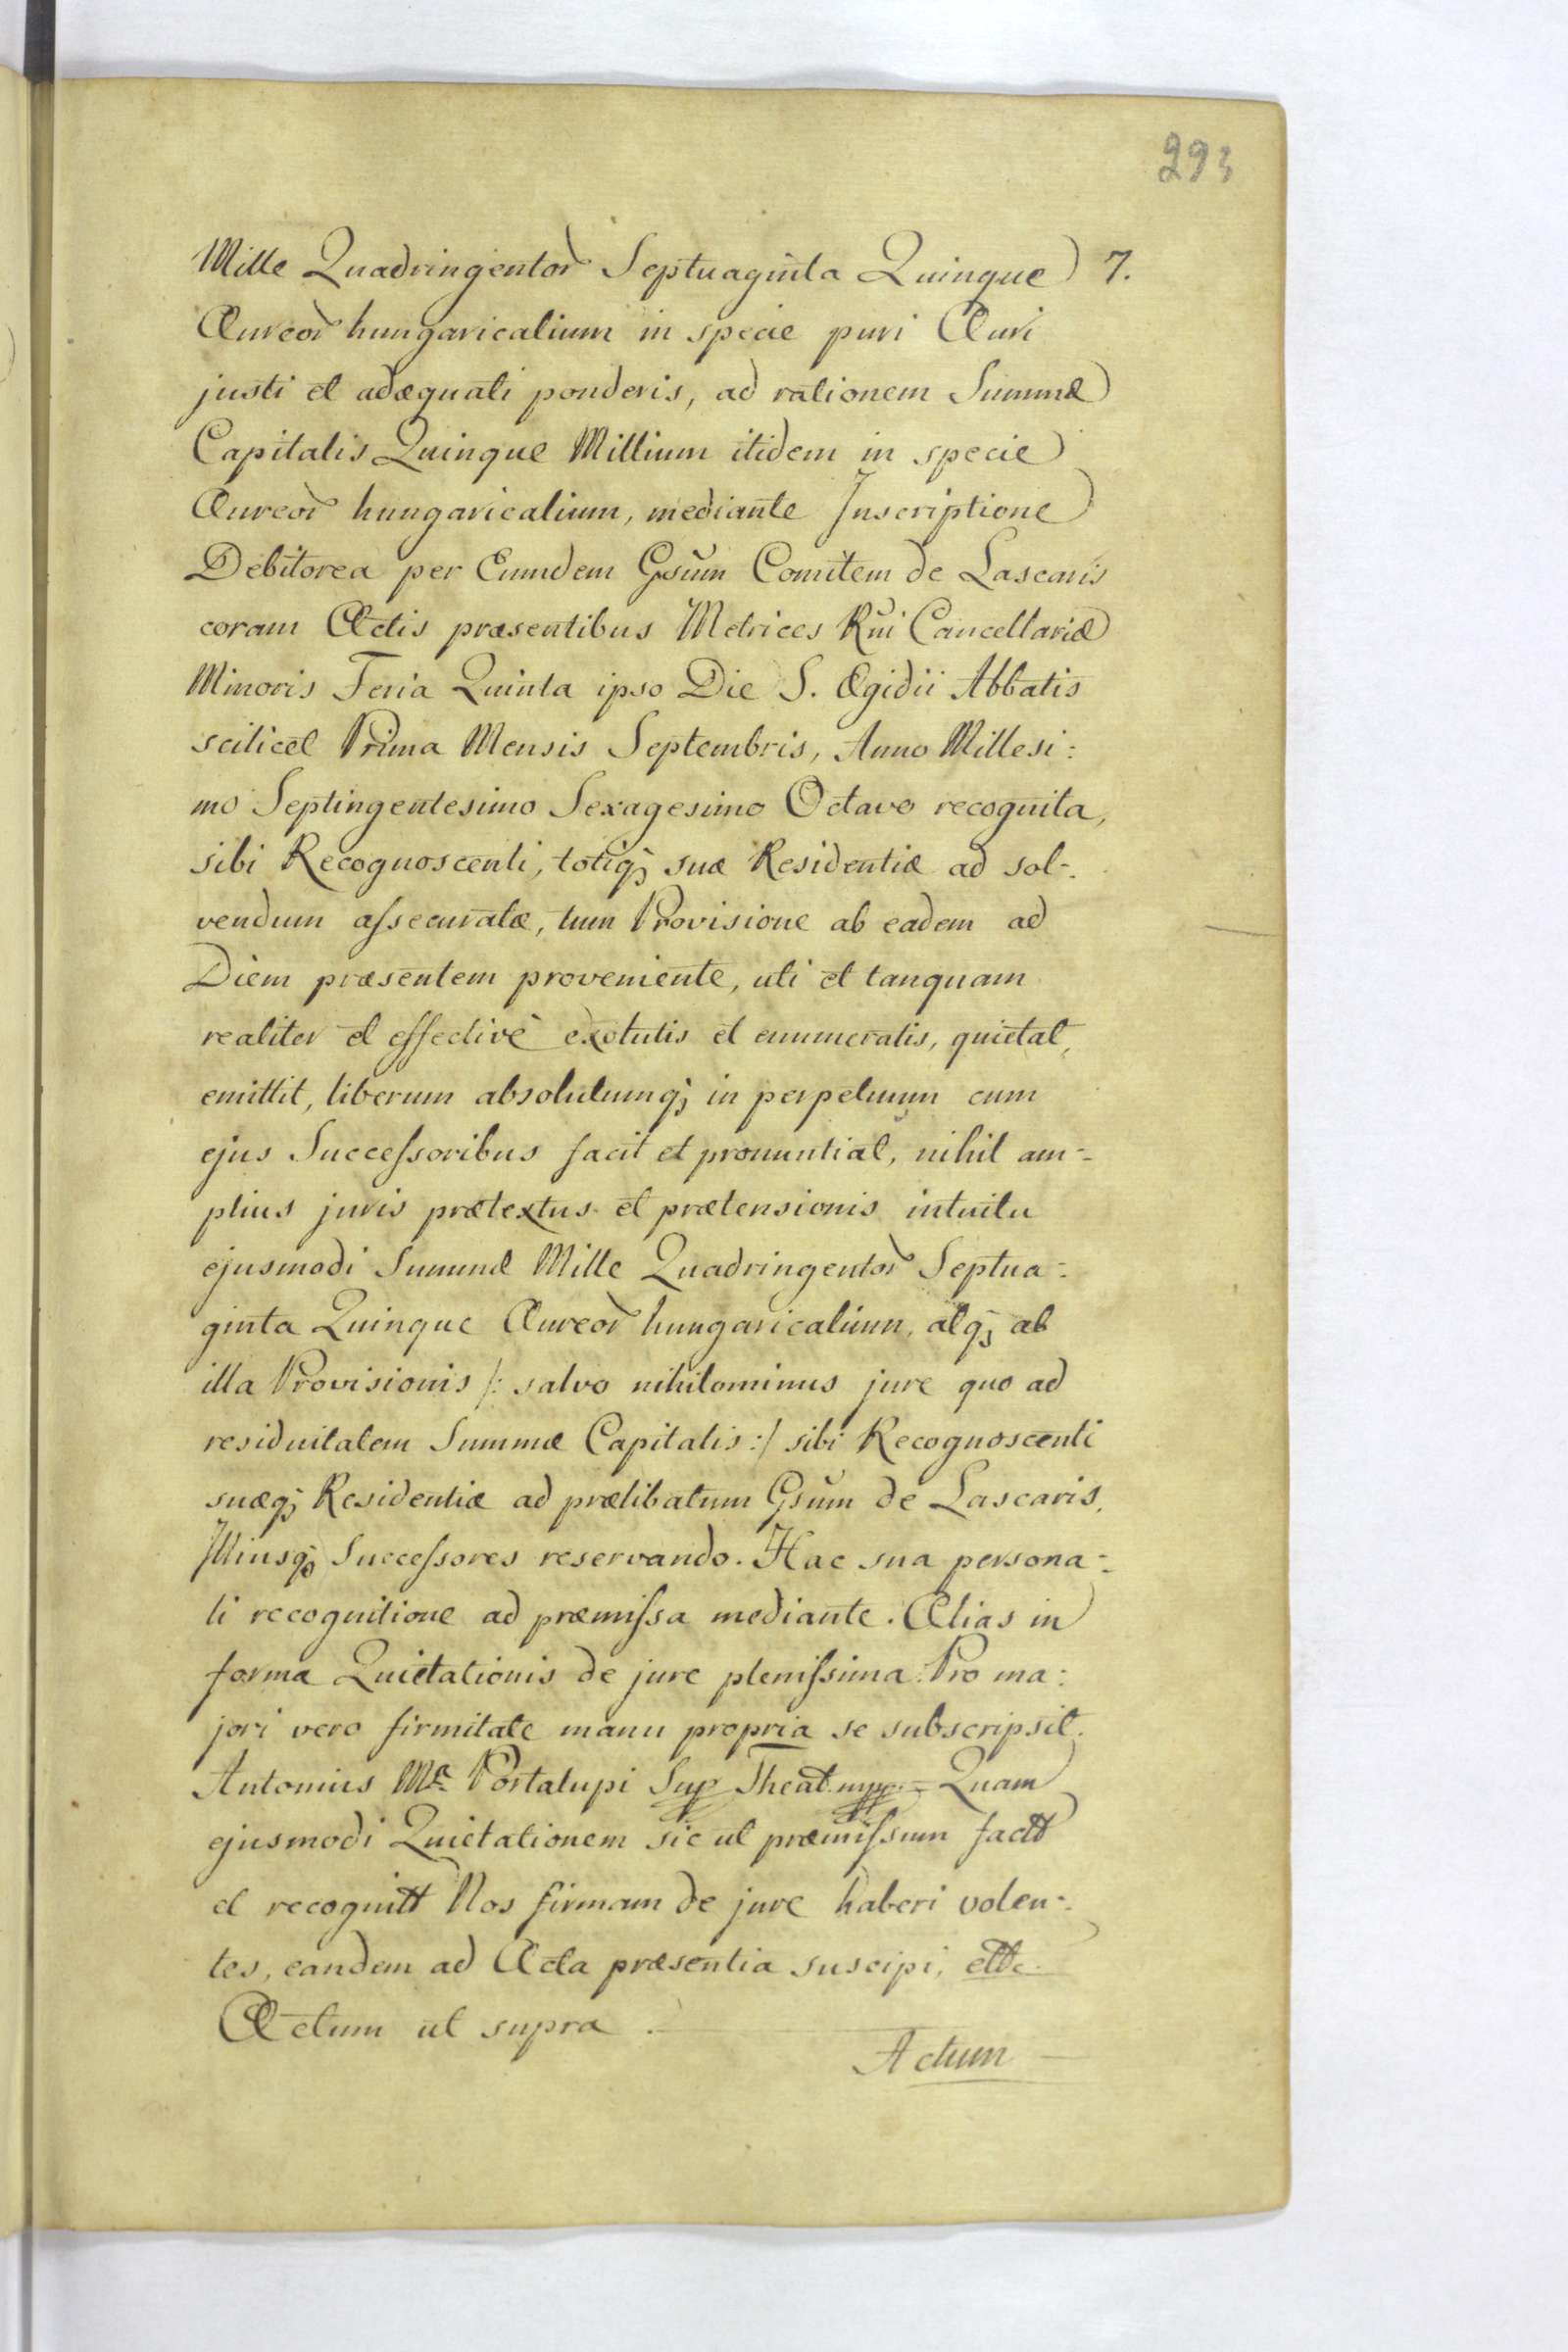 293
Mille Quadringentor Septuaginta Quinque 7.
Aureor hungaricalium in specie puri Auri
justi et adæquati ponderis, ad rationem Summæ
Capitalis Quinque Millium itidem in specie
Aureor hungaricalium, mediante Inscriptione
Debitorea per Eumdem Gsum Comitem de Lascaris
coram Actis præsentibus Metrices Rni Cancellariæ
Minoris Feria Quinta ipso Die S. Ægidii Abbatis
scilicet Prima Mensis Septembris, Anno Millesi:
mo Septingentesimo Sexagesimo Octavo recognita,
sibi Recognoscenti, totiq; suæ Residentiæ ad sol-
vendum assecuratæ, tum Provisione ab eadem ad
Diem præsentem proveniente, uti et tanquam
realiter et effectivè exolutis et enumeratis, quietat,
emittit, liberum absolutumq; in perpetuum cum
ejus Successoribus facit et pronuntiat, nihil am-
plius juris prætextus et prætensionis intuitu
ejusmodi Summæ Mille Quadringentor Septua-
ginta Quinque Aureor hungaricalium, atq; ab
illa Provisionis /: salvo nihilominus jure quo ad
residuitatem Summæ Capitalis :/ sibi Recognoscenti
suæq; Residentiæ ad prælibatum Gsum de Lascaris,
Illiusq; Successores reservando. Hac sua persona-
li recognitione ad præmissa mediante. Alias in
forma Quietationis de jure plenissima. Pro ma:
jori vero firmitate manu propria se subscripsit.
Antonius Mª Portalupi Sup Theat mpp = Quam
ejusmodi Quietationem sic ut præmissum factt
et recognitt Nos firmam de jure haberi volen-
tes, eandem ad Acta præsentia suscipi, ettc.
Actum ut supra.
Actum